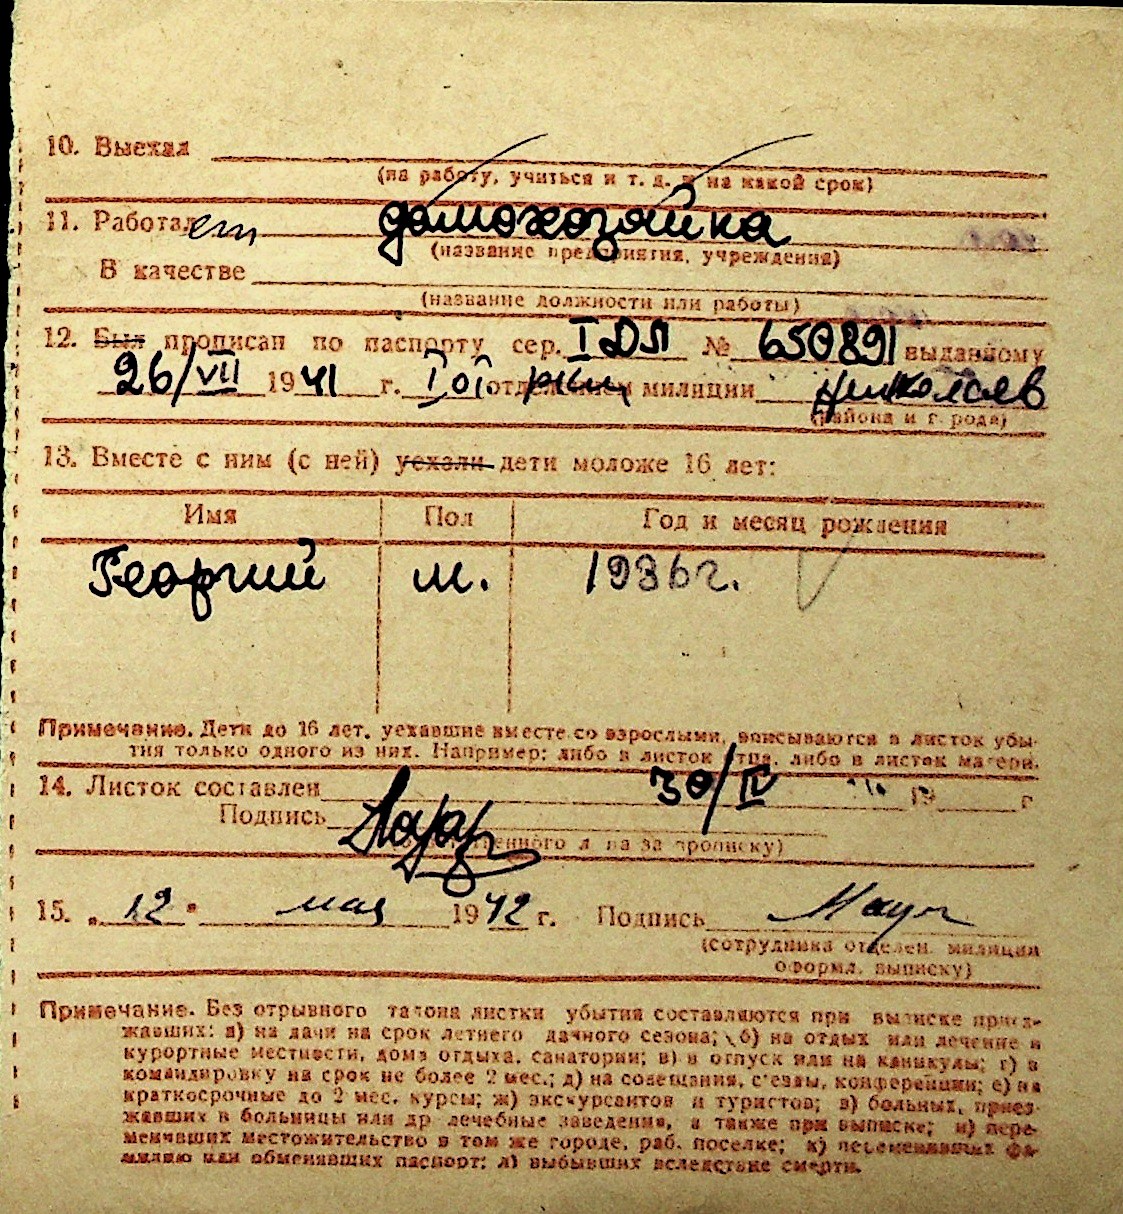 10. Выехал
(на работу, учиться и т. д. и на какой срок)
11. Работает домохозяйка
(название предприятия, учреждения)
В качестве
(название должности или работы)
12. Был прописан по паспорту сер. I ДЛ № 650891 выданному
26/VII 1941 г. I ой отделением милиции Николаев
(района и города)
13. Вместе с ним (с ней) уехали дети моложе 16 лет:
Имя Пол Год и месяц рождения
Георгий м. 1936 г.
Примечание. Дети до 16 лет, уехавшие вместе со взрослыми, вписываются в листок убы-
тия только одного из них. Например: либо в листок отца, либо в листок матери.
14. Листок составлен 30/IV 19 г
Подпись
(ответственного л ца за прописку)
15. „12" мая 1942 г. Подпись
(сотрудника отделен. милиции
оформл. выписку)
Примечание. Без отрывного талона листки убытия составляются при выписке приез-
жавших: а) на дачи на срок летнего дачного сезона; б) на отдых или лечение в
курортные местности, дома отдыха, санатории; в) в отпуск или на каникулы; г) в
командировку на срок не более 2 мес.; д) на совещания, съезды, конференции; е) на
краткосрочные до 2 мес. курсы; ж) экскурсантов и туристов; з) больных, приез-
жавших в больницы или др лечебные заведения, а также при выписке; и) пере-
менивших местожительство в том же городе, раб. поселке; к) переменивших фа-
милию или обменявших паспорт; л) выбывших вследствие смерти.